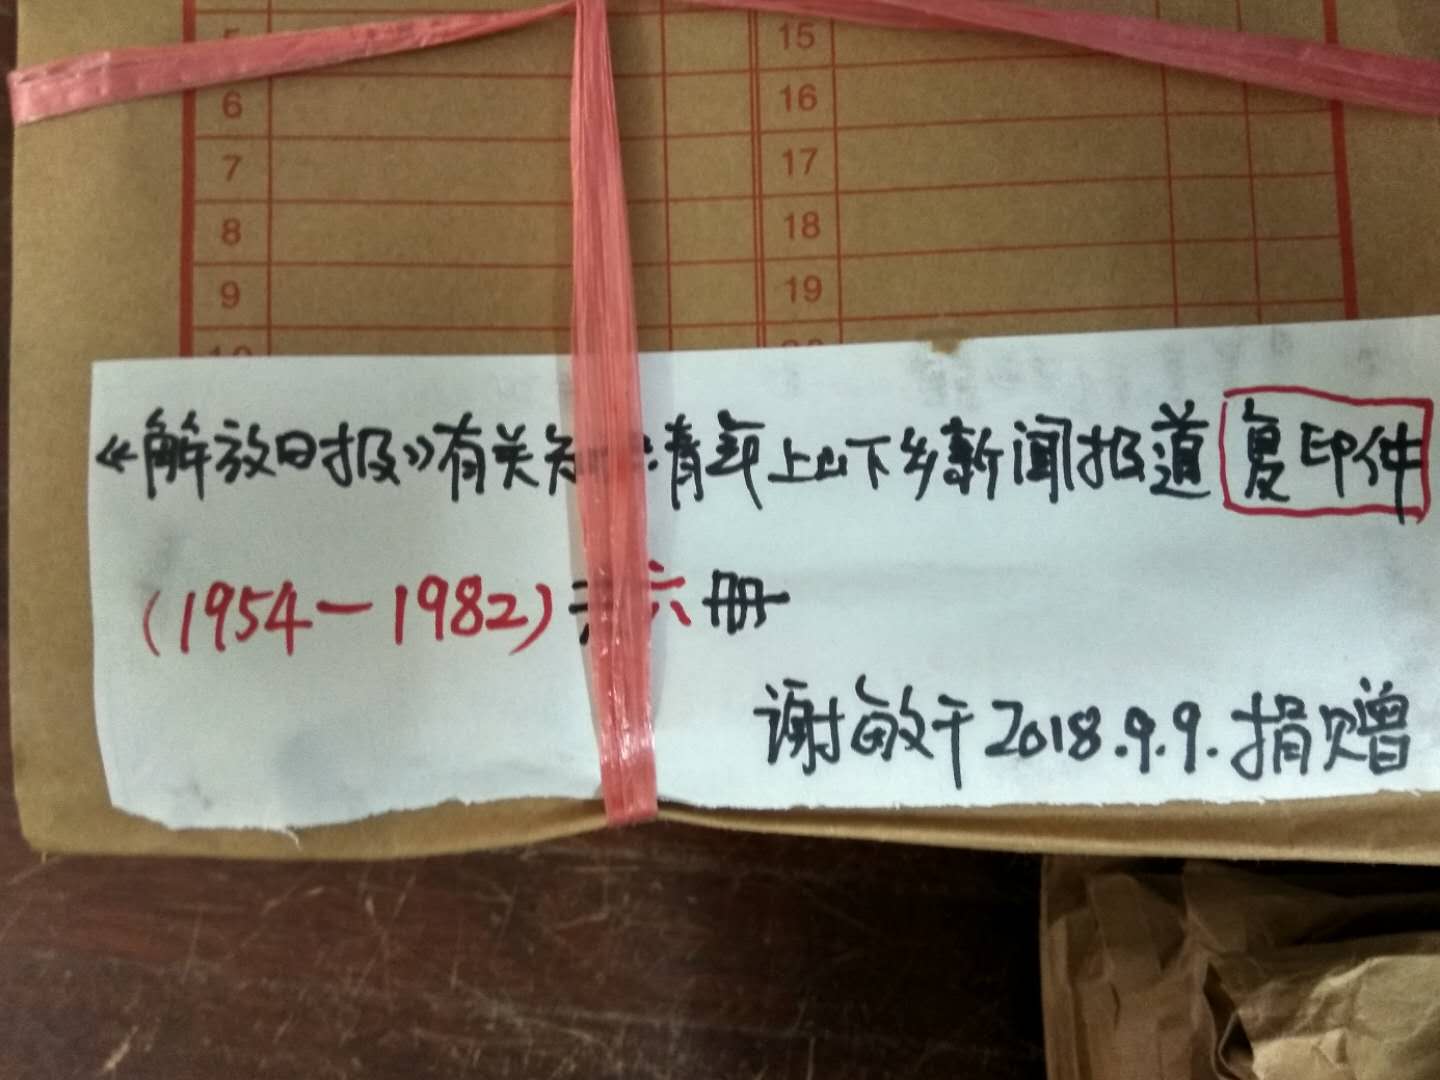 5 15
6 16
7 17
8 18
9 19
10 20
《解放日报》有关知 青年上山下乡新闻报道 复印件
(1954-1982)共六册
谢敏干2018.9.9.捐赠